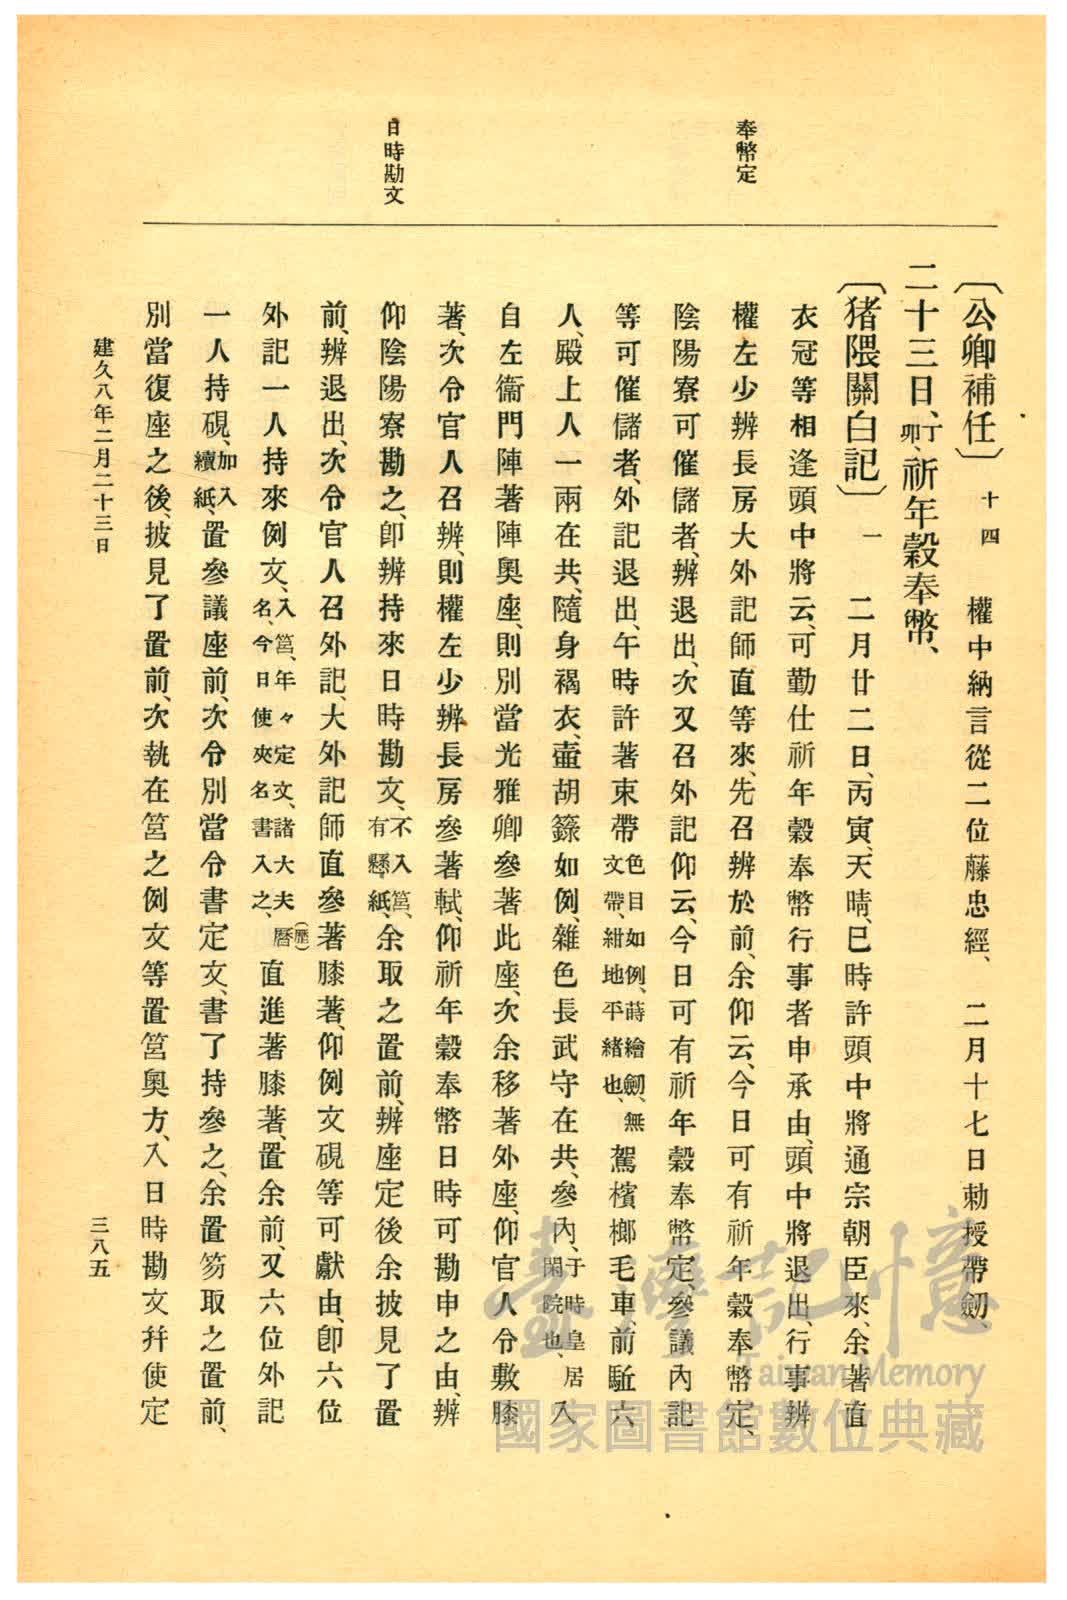 奉幣定
日時勘文
〔公卿補任〕十四 權中納言從二位藤忠經、二月十七日勅授帶劒、
二十三日、丁卯、祈年穀奉幣、
〔猪隈關白記〕一 二月廿二日、丙寅、天晴、巳時許頭中將通宗朝臣來、余著直
衣冠等相逢頭中將云、可勤仕祈年穀奉幣行事者申承由、頭中將退出、行事辨
權左少辨長房大外記師直等來、先召辨於前、余仰云、今日可有祈年穀奉幣定、
陰陽寮可催儲者、辨退出、次又召外記仰云、今日可有祈年穀奉幣定、參議內記
等可催儲者、外記退出、午時許著束帶色目如例、蒔繪劒、無文帶、紺地平緒也、駕檳榔毛車、前駈六
人、殿上人一兩在共、隨身褐衣、壷胡籙如例、雜色長武守在共、參內、于時皇居閑院也、入
自左衞門陣著陣奧座、則別當光雅卿參著此座、次余移著外座、仰官人令敷膝
著、次令官人召辨、則權左少辨長房參著軾、仰祈年穀奉幣日時可勘申之由、辨
仰陰陽寮勘之、卽辨持來日時勘文、不入筥、有懸紙、余取之置前、辨座定後余披見了置
前、辨退出、次令官人召外記、大外記師直參著膝著、仰例文硯等可獻由、卽六位
外記一人持來例文、入筥、年々定文、諸大夫曆(歷)名、今日使夾名書入之、直進著膝著、置余前、又六位外記
一人持硯、加入續紙、置參議座前、次令別當令書定文、書了持參之、余置笏取之置前、
別當復座之後、披見了置前、次執在筥之例文等置筥奧方、入日時勘文幷使定
建久八年二月二十三日
三八五
臺灣記憶
Taiwan Memory
國家圖書館數位典藏